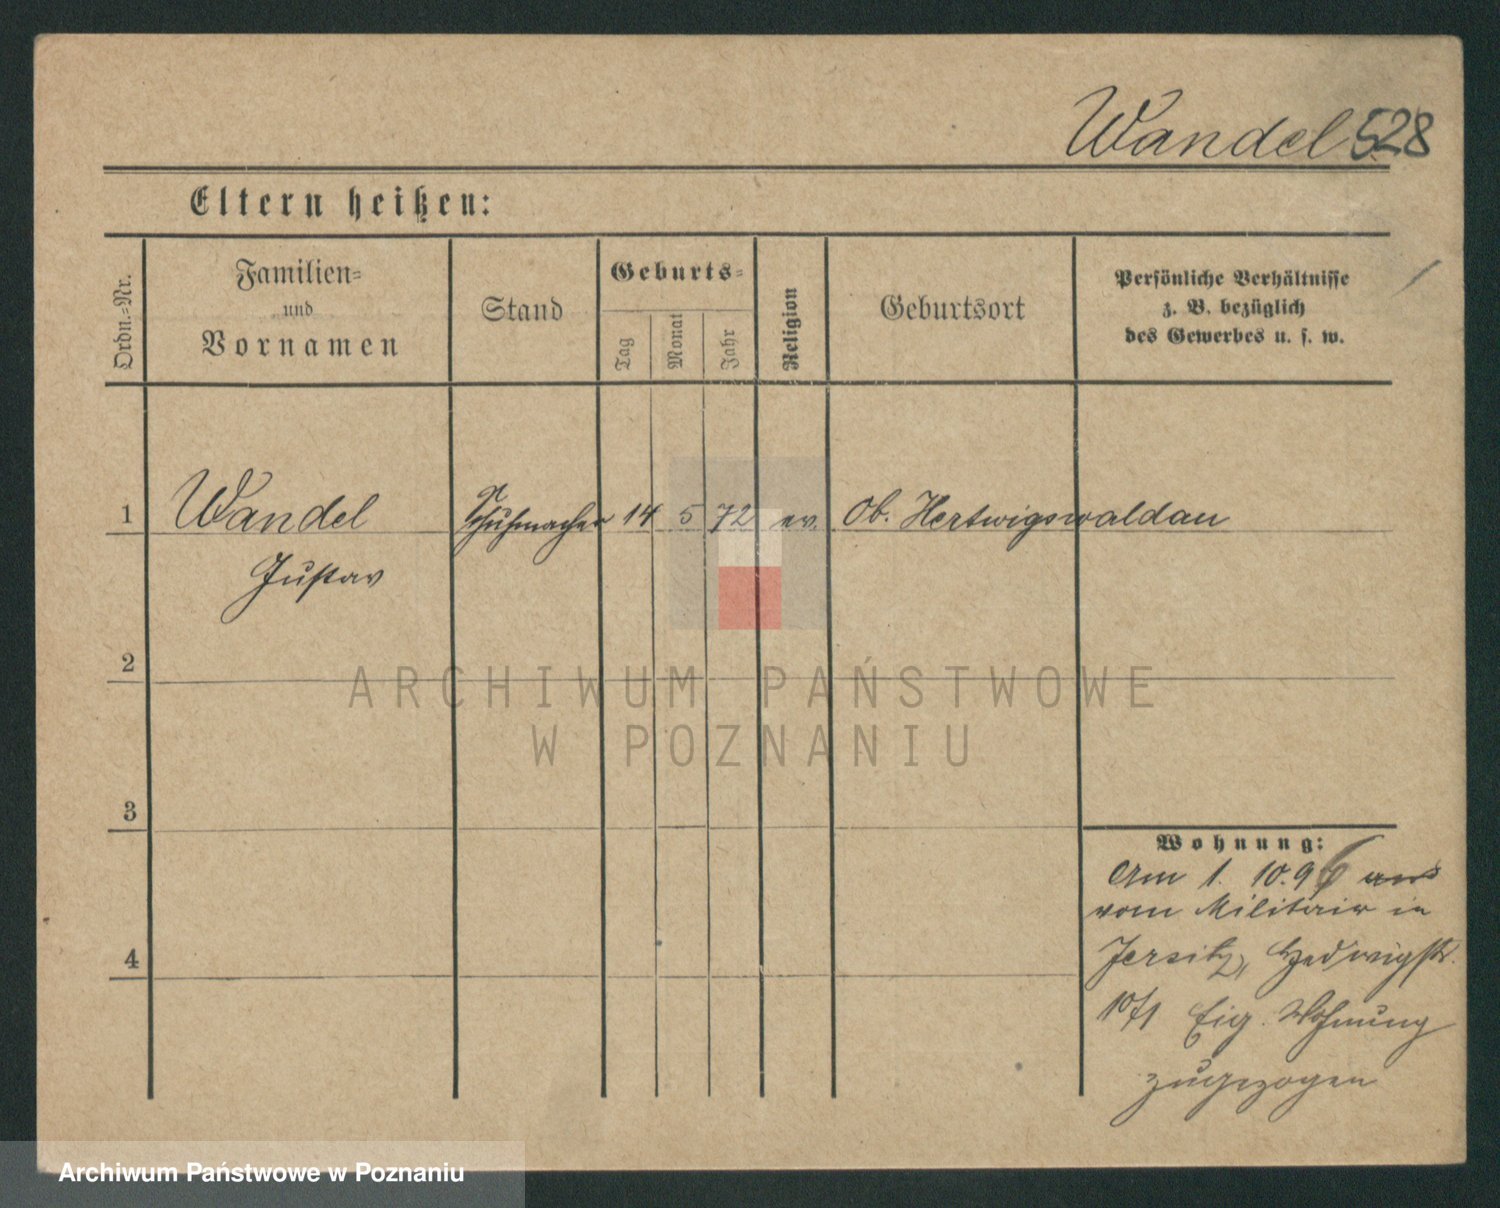 Wandel 528
Eltern heißen:
Ordn.-Nr.
Familien-
und
Vornamen
Stand
Geburts-
Tag
Monat
Jahr
Religion
Geburtsort
Persönliche Verhältnisse
z. B. bezüglich
des Gewerbes u. s. w.
1 Wandel Schuhmacher 14 5 72 ev. Ob. Hertwigswaldau
Gustav
2
3
4
Wohnung:
Am 1. 10. 96 aus
vom Militair in
Jersitz, Hedwigstr.
10/1 Eig. Wohnung
zugezogen
ARCHIWUM PAŃSTWOWE
W POZNANIU
Archiwum Państwowe w Poznaniu